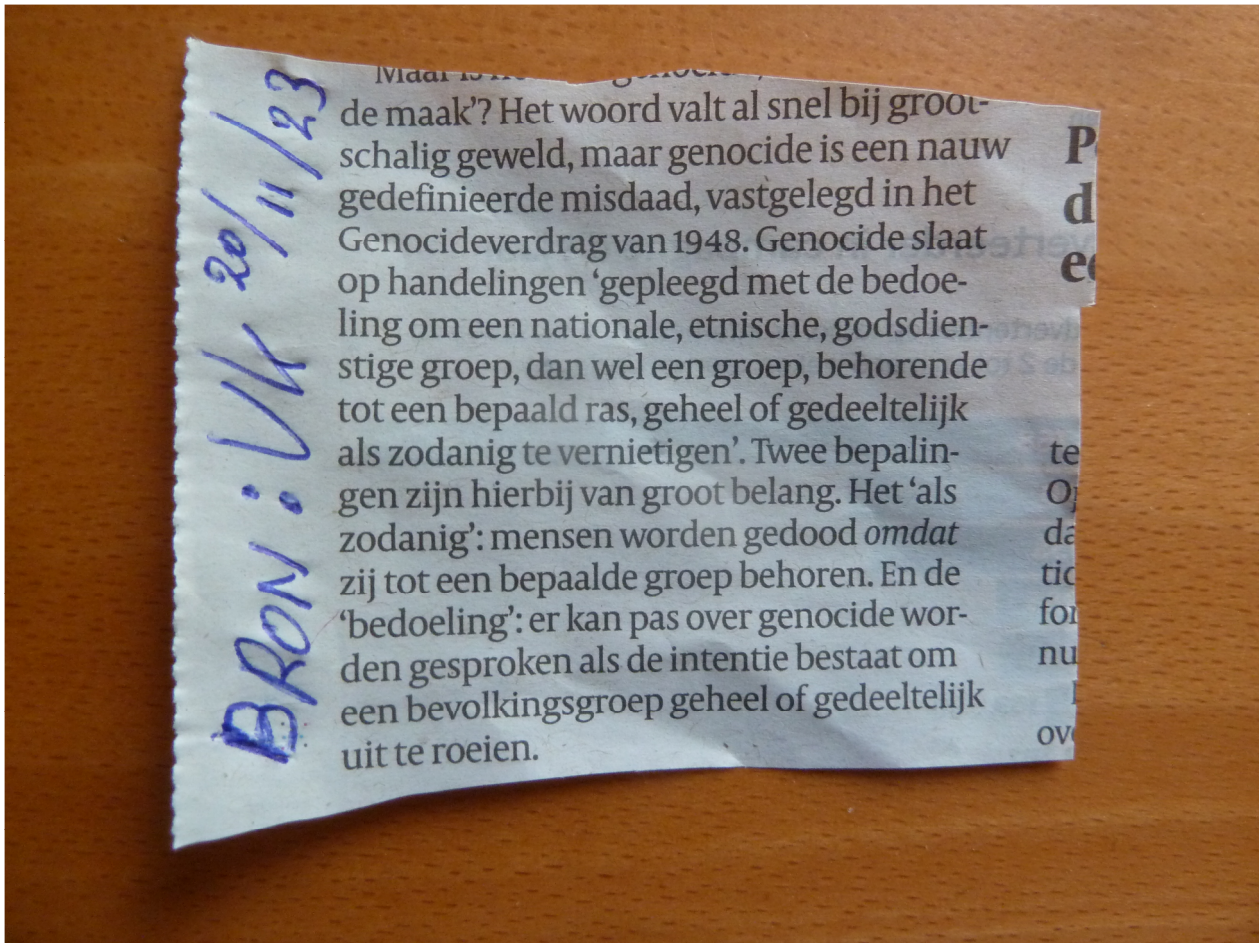 BRON: VK 20/11/23
de maak'? Het woord valt al snel bij groot-
schalig geweld, maar genocide is een nauw
gedefinieerde misdaad, vastgelegd in het
Genocideverdrag van 1948. Genocide slaat
op handelingen 'gepleegd met de bedoe-
ling om een nationale, etnische, godsdien-
stige groep, dan wel een groep, behorende
tot een bepaald ras, geheel of gedeeltelijk
als zodanig te vernietigen'. Twee bepalin-
gen zijn hierbij van groot belang. Het 'als
zodanig': mensen worden gedood omdat
zij tot een bepaalde groep behoren. En de
'bedoeling': er kan pas over genocide wor-
den gesproken als de intentie bestaat om
een bevolkingsgroep geheel of gedeeltelijk
uit te roeien.